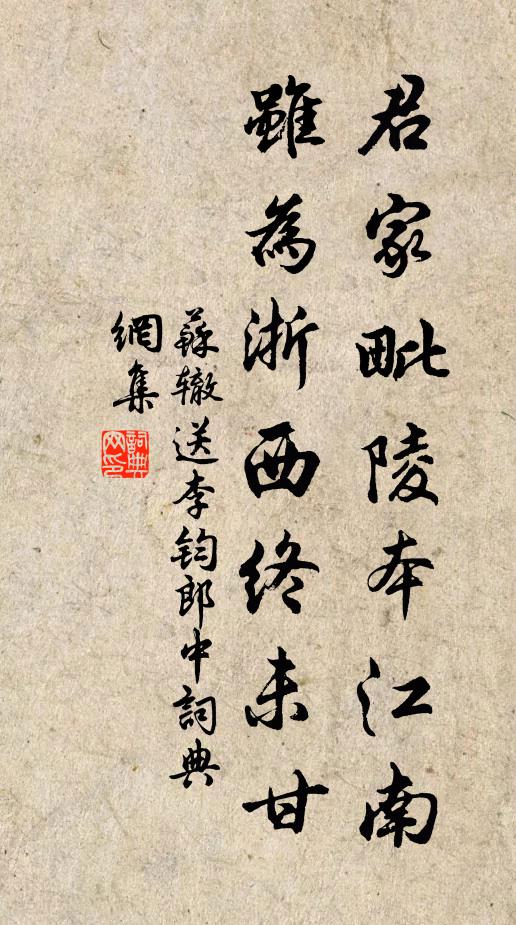 君家毗陵本江南
雖為浙西終未甘
蘇辙送李鈞郎中詞典
網集
詞典
网印